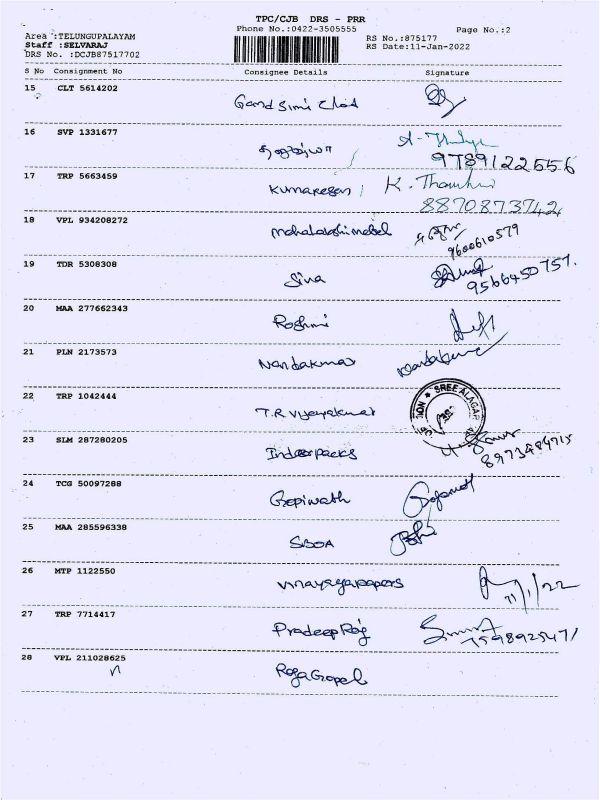 TPC/CJB DRS - PRR
Phone No.:0422-3505555
Page No.:2
Area :TELUNGUPALAYAM
Staff :SELVARAJ
DRS No. :DCJB87517702
RS No.:875177
RS Date:11-Jan-2022
S No Consignment No Consignee Details Signature
15 CLT 5614202
16 SVP 1331677
9789122556
17 TRP 5663459 Kumaresan K.
8870873742
18 VPL 934208272
9600610579
19 TDR 5308308 Siva
9566450757.
20 MAA 277662343 Roshmi
21 PLN 2173573 Nandakumar Nandakumar
22 TRP 1042444 T.R Vijayakumar
SREE ALAGAR
23 SLM 287280205 Indoorpacks
8973484715
24 TCG 50097288 Gopinath
25 MAA 285596338 SIBOA
26 MTP 1122550 Vinayagapapers
11/1/22
27 TRP 7714417 Pradeep Raj
7598925471
28 VPL 211028625 RajaGopal